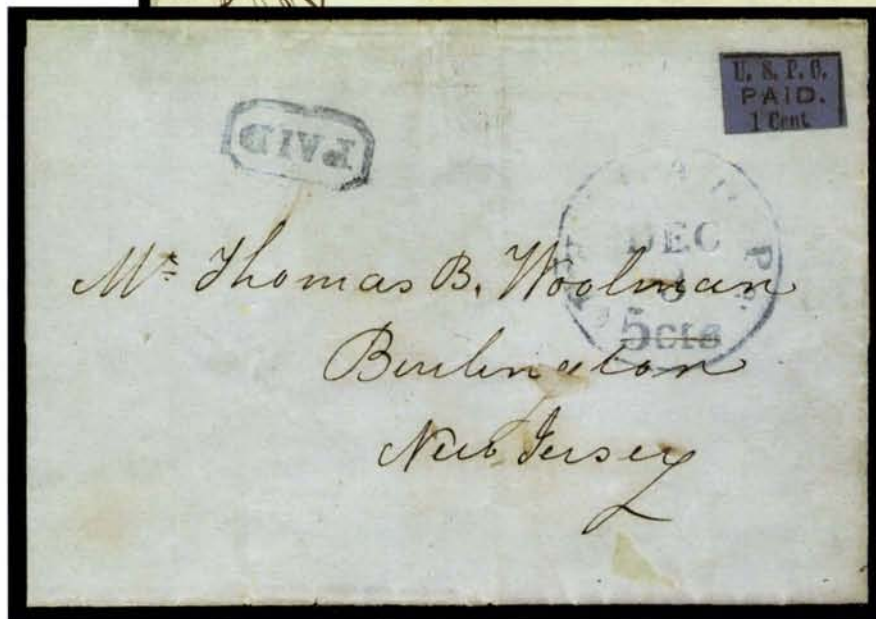 U. S. P. O.
PAID.
1 Cent
PAID
DEC
Pa.
5cts
Mr. Thomas B. Woolman
Burlington
New Jersey